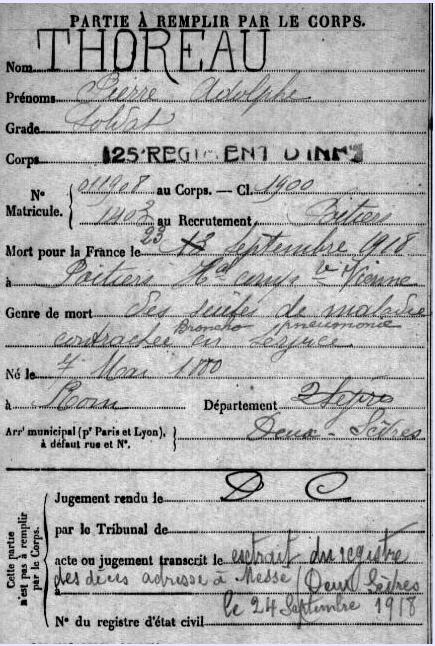 PARTIE À REMPLIR PAR LE CORPS.
Nom THOREAU
Prénoms Pierre Adolphe
Grade Soldat
Corps 125e REGIMENT D'INF
N° Matricule. 011908 au Corps. — Cl. 1900
1403 au Recrutement Poitiers
23
Mort pour la France le 13 septembre 1918
à Poitiers Hal Vienne
Genre de mort des suites de maladie
Broncho pneumonie
contractée en service
Né le 7 Mai 1880
à Rom Département 2 Sèvres
Arr' municipal (p' Paris et Lyon), à défaut rue et N°. Deux-Sèvres
Cette partie n'est pas à remplir par le Corps.
Jugement rendu le D C
par le Tribunal de
acte ou jugement transcrit le extrait du registre
à des décès adressé à Messé (Deux Sèvres
le 24 Septembre 1918
N° du registre d'état civil